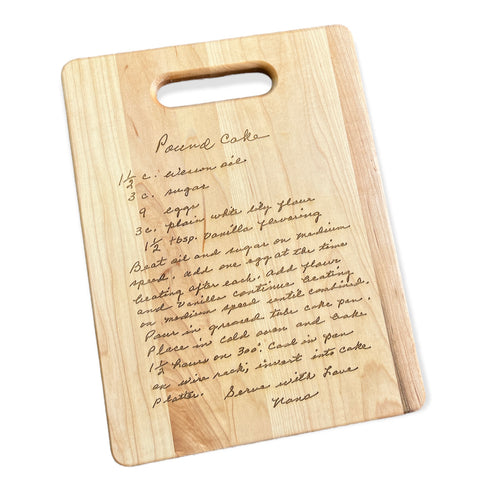 Pound Cake
1 1/2 c. wesson oil
3 c. sugar
9 eggs
3 c. plain white lily flour
1 1/2 tbsp. Vanilla flavoring
Beat oil and sugar on medium
speed. add one egg at the time
beating after each. add flour
and Vanilla continue beating
on medium speed until combined.
Pour in greased tube cake pan.
Place in cold oven and bake
1 1/2 hours on 300°. Cool in pan
on wire rack, invert into cake
platter. Serve with Love
Nana